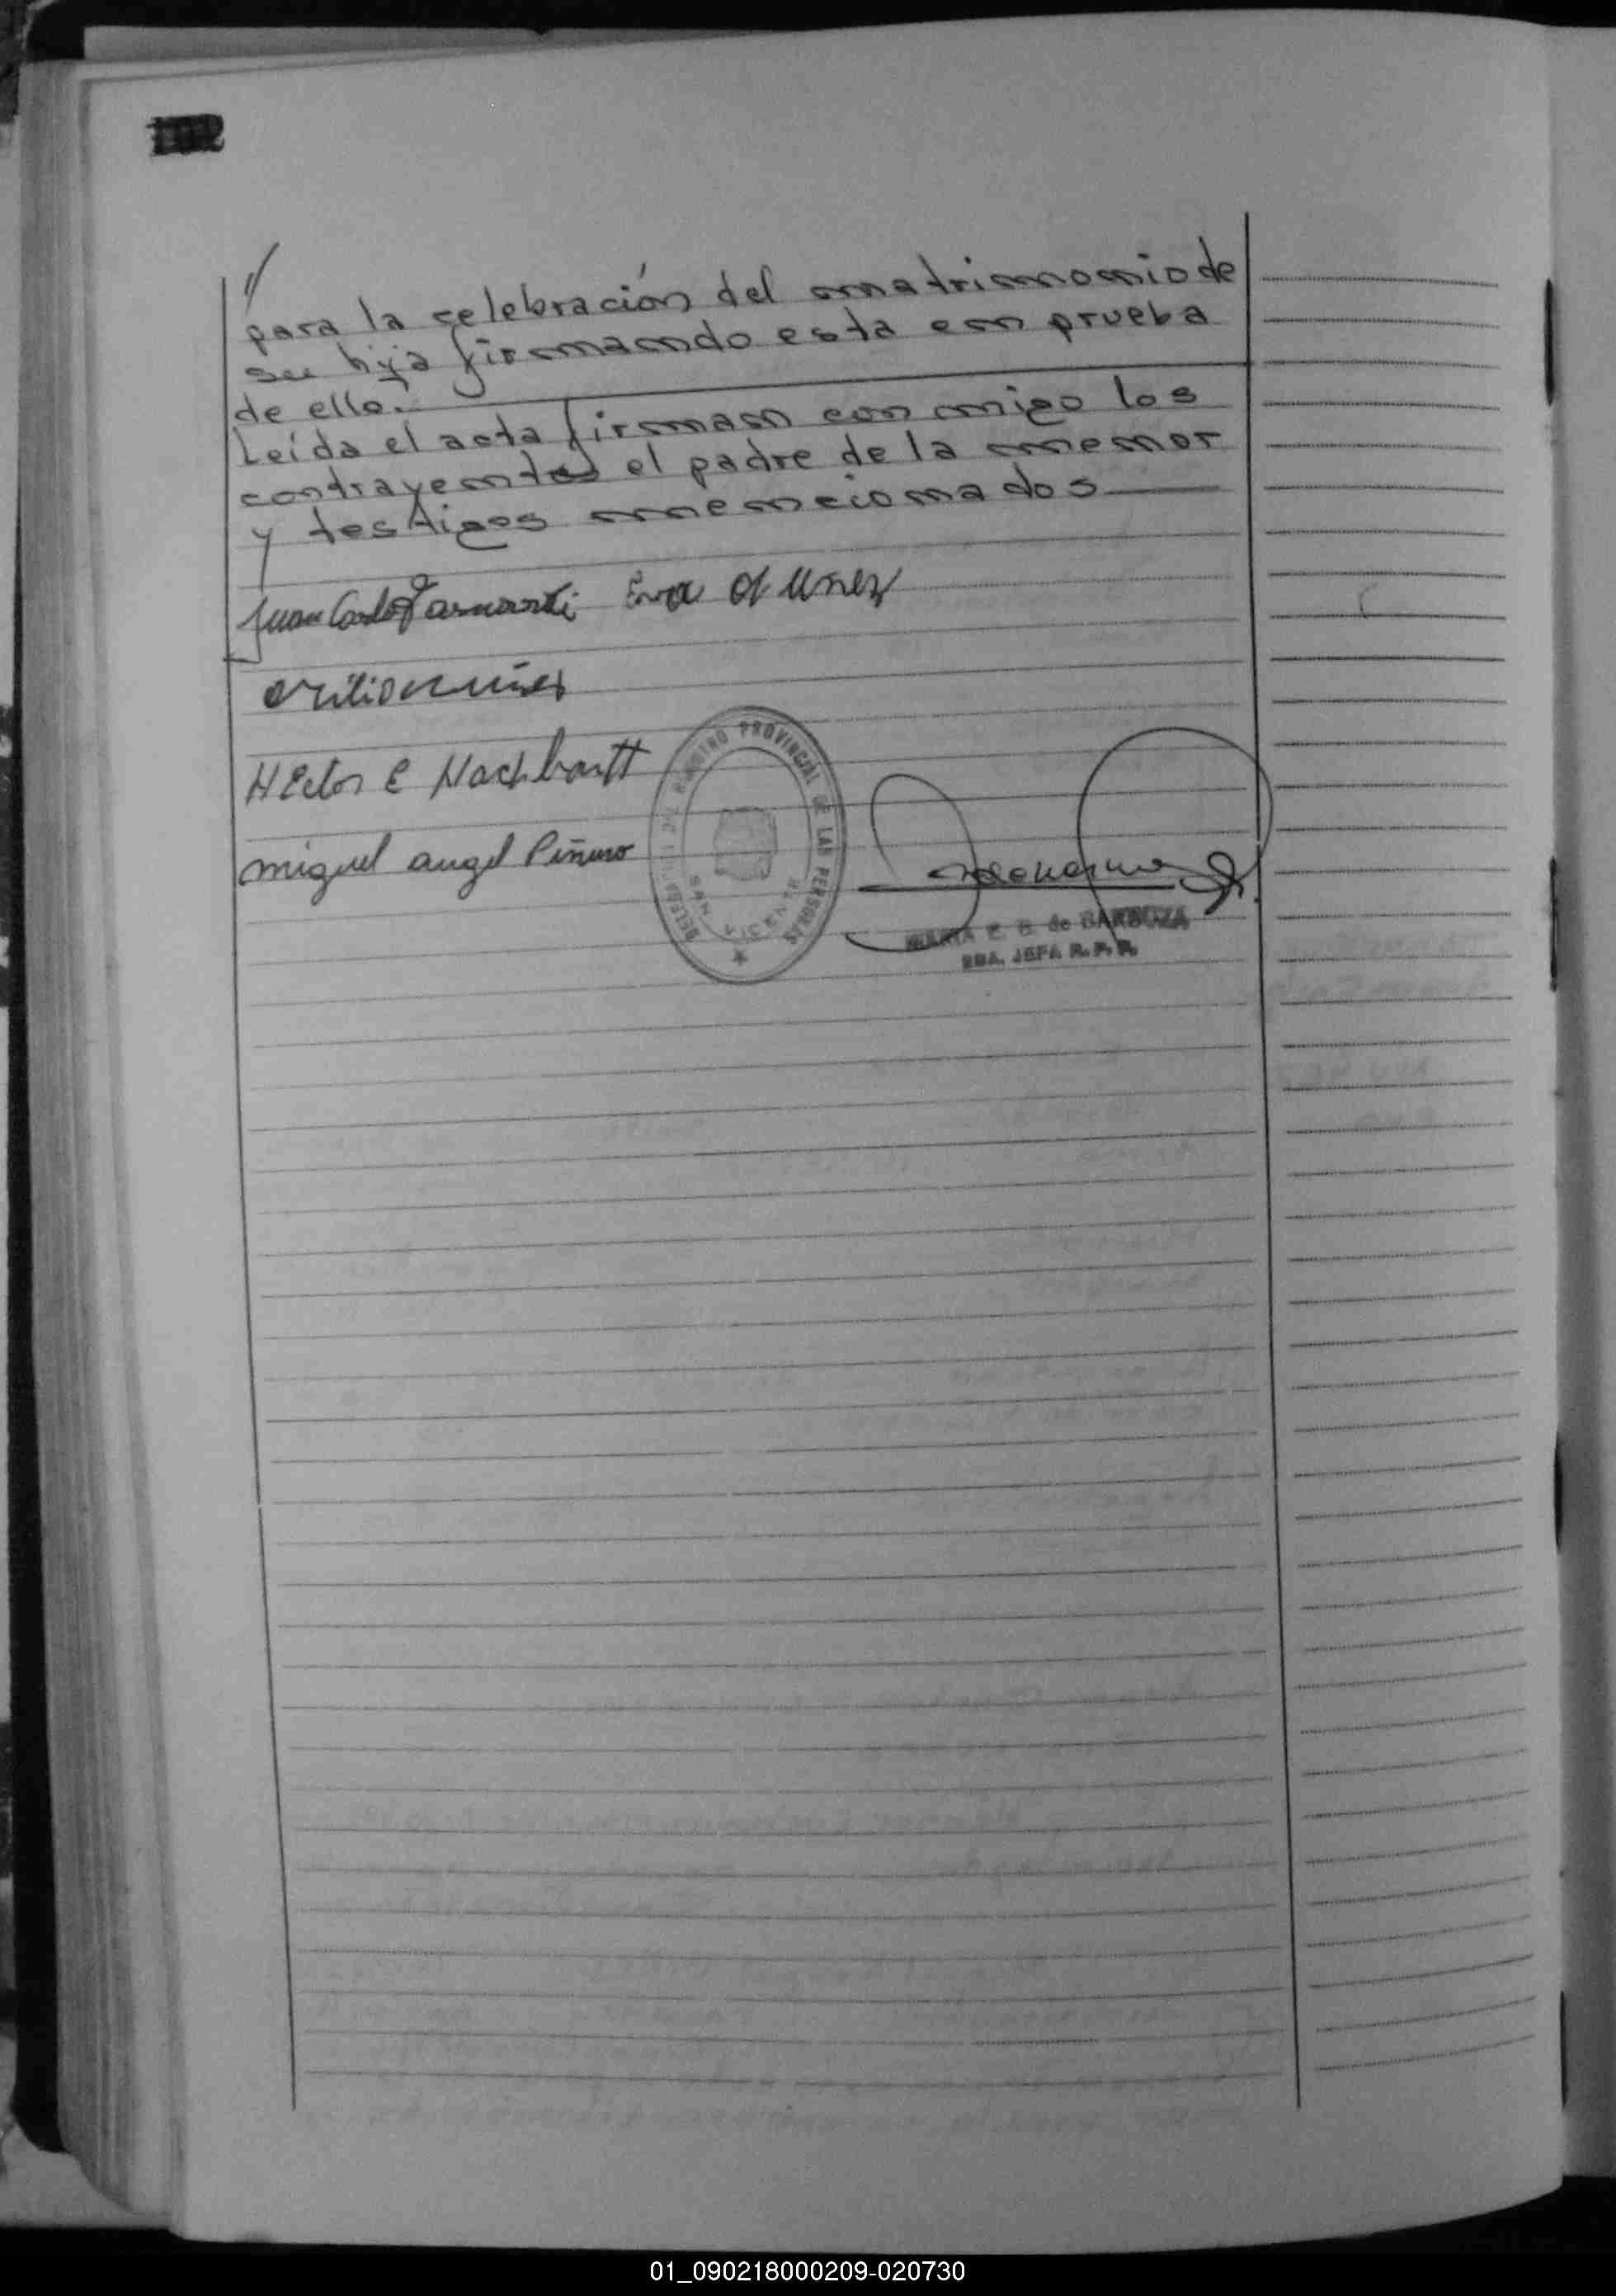 102
//
para la celebración del matrimonio de
su hija firmando esta en prueba
de ello.
Leída el acta firman con migo los
contrayentes el padre de la menor
y testigos mencionados
Juan Carlos
Eva Nunez
Hector E
miguel angel Piñero
DELEGACION DEL REGISTRO PROVINCIAL DE LAS PERSONAS
SAN
MARIA E. B. de BARBOZA
SDA. JEFA R. P. P.
01_090218000209-020730